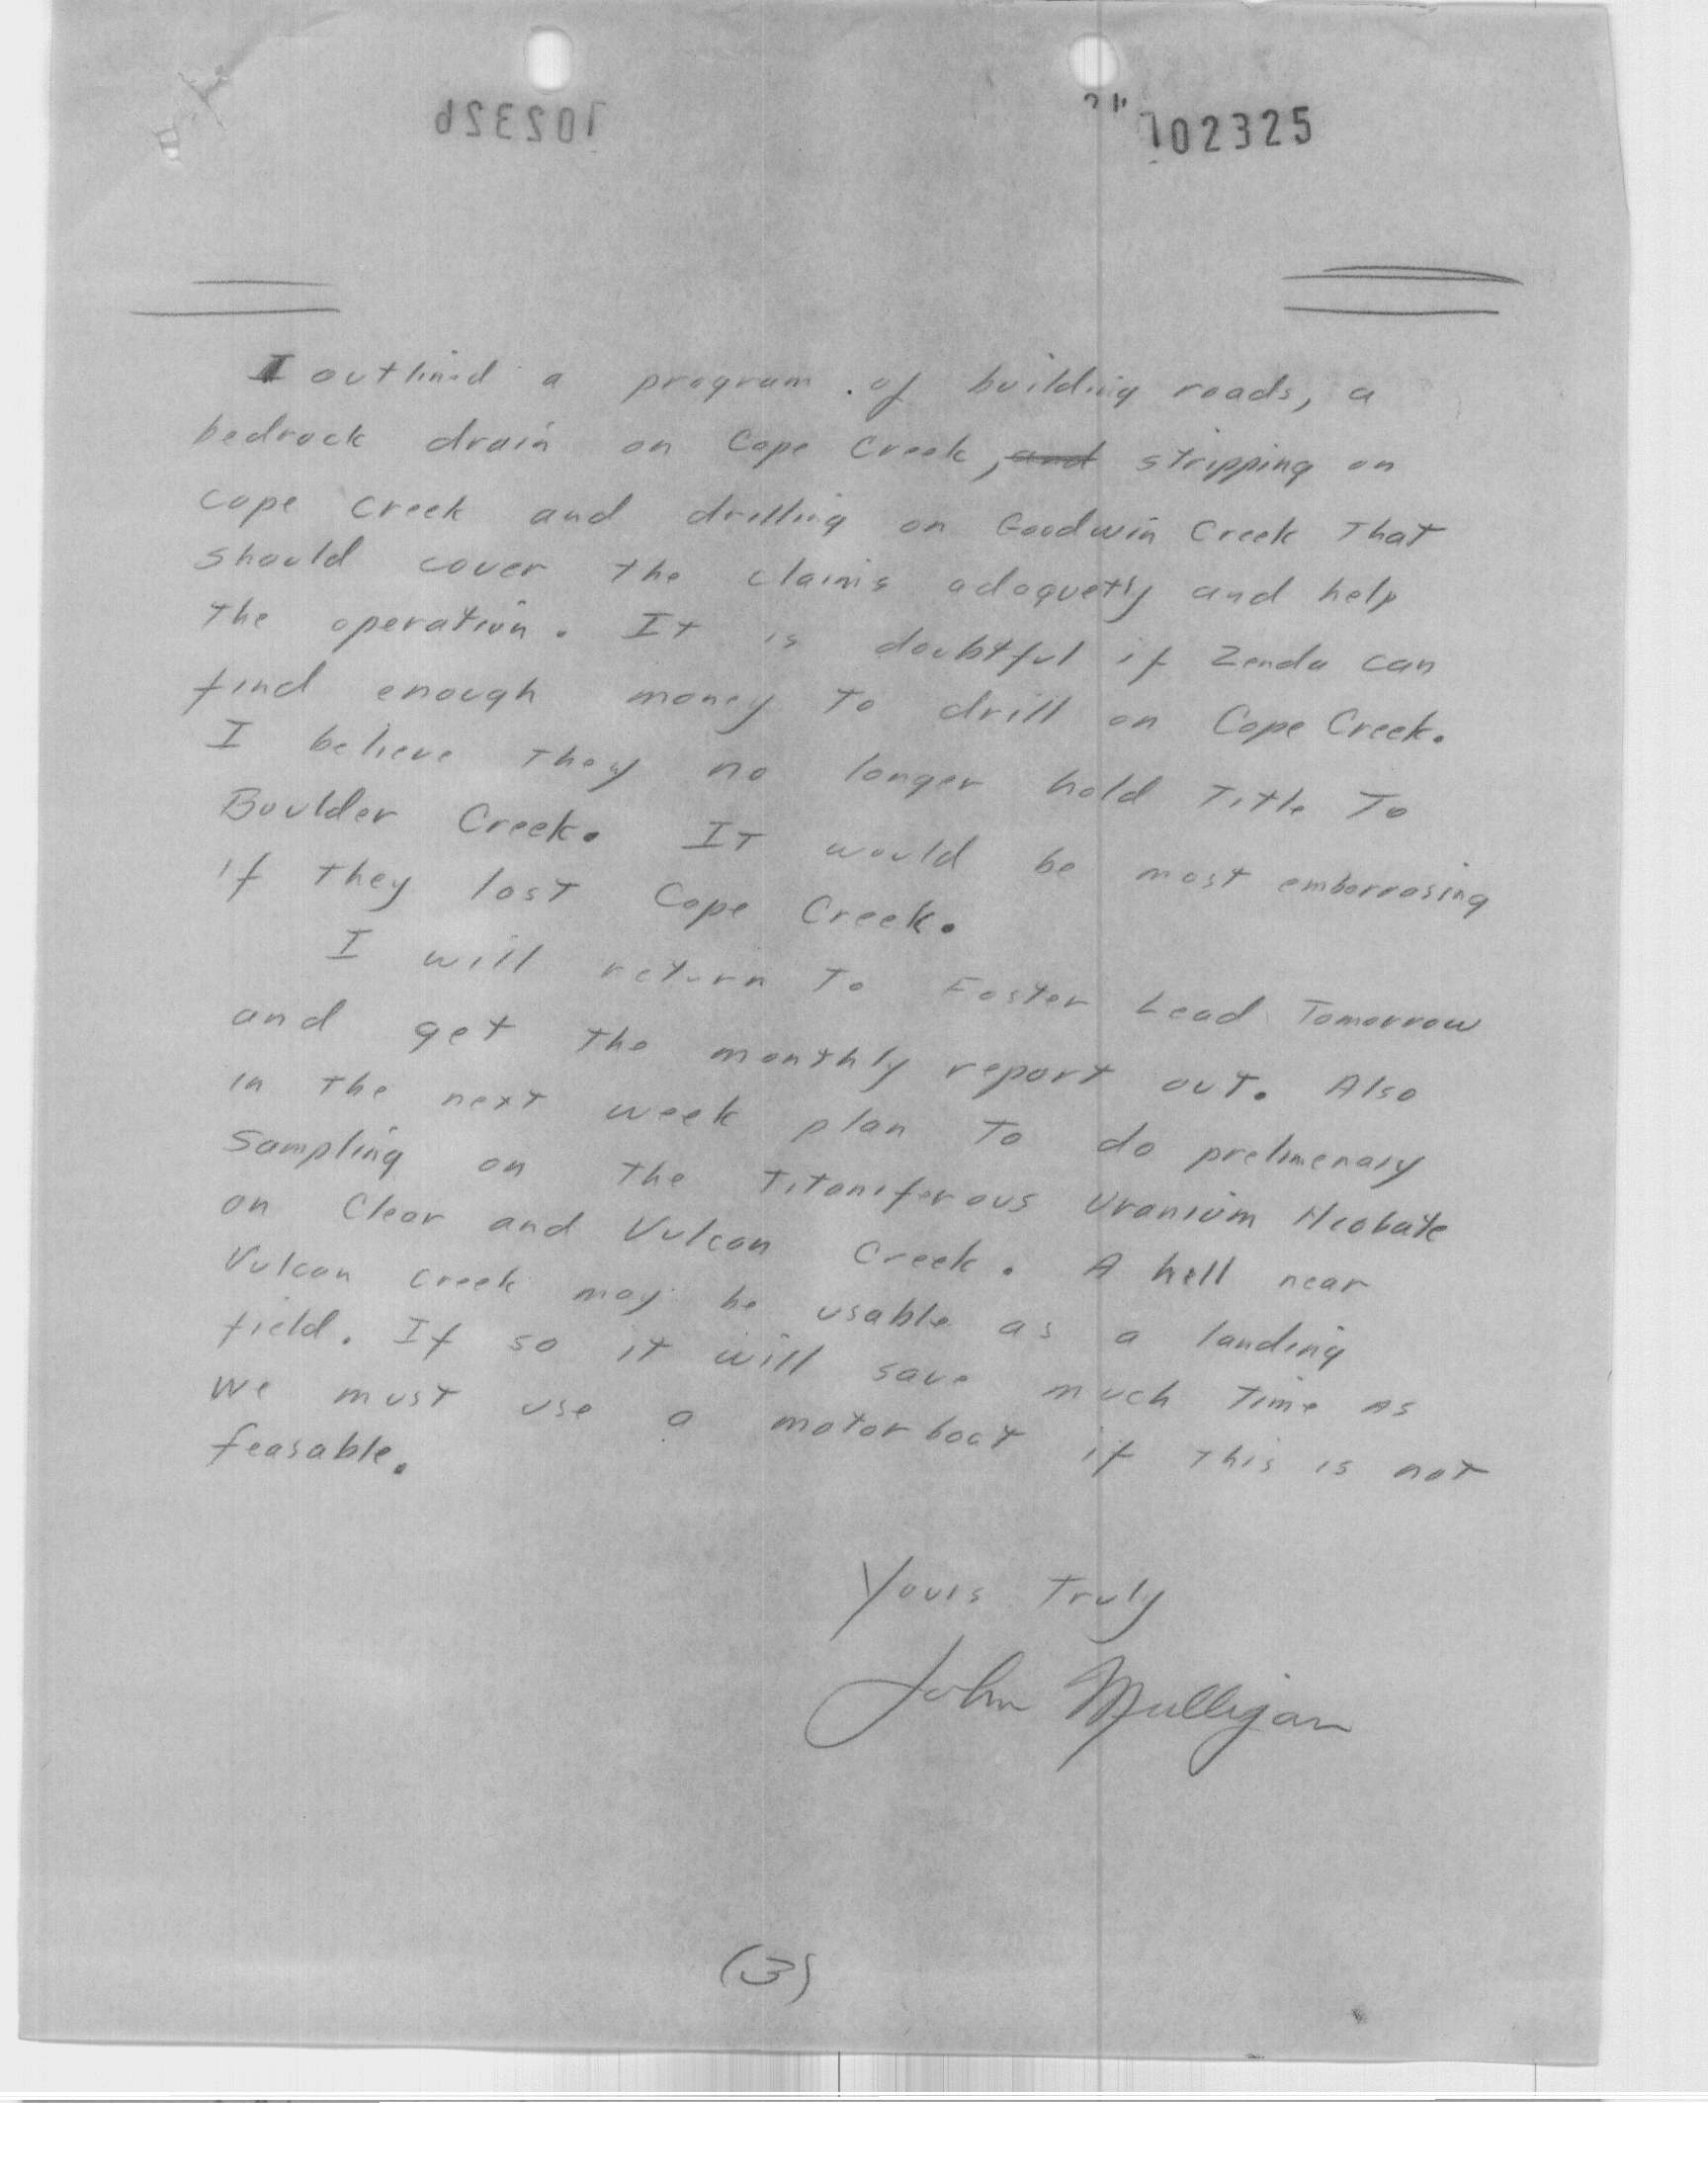 102326
102325
I outlined a program of building roads, a
bedrock drain on Cape Creek, and stripping on
cape creek and drilling on Goodwin Creek That
should cover the claims adaquetly and help
the operation. It is doubtful if Zenda can
find enough money To drill on Cape Creek.
I believe They no longer hold Title To
Boulder Creek. IT would be most emborrasing
if they lost Cape Creek.
I will return To Foster Lead Tomorrow
and get the monthly report out. Also
in the next week plan To do prelimenary
Sampling on the Titaniferous Uranium Niobate
on Clear and Vulcan Creek. A hill near
Vulcan creek may be usable as a landing
field. If so it will save much Time As
we must use a motor boat if This is not
feasable.
Yours Truly
John Mulligan
(3)